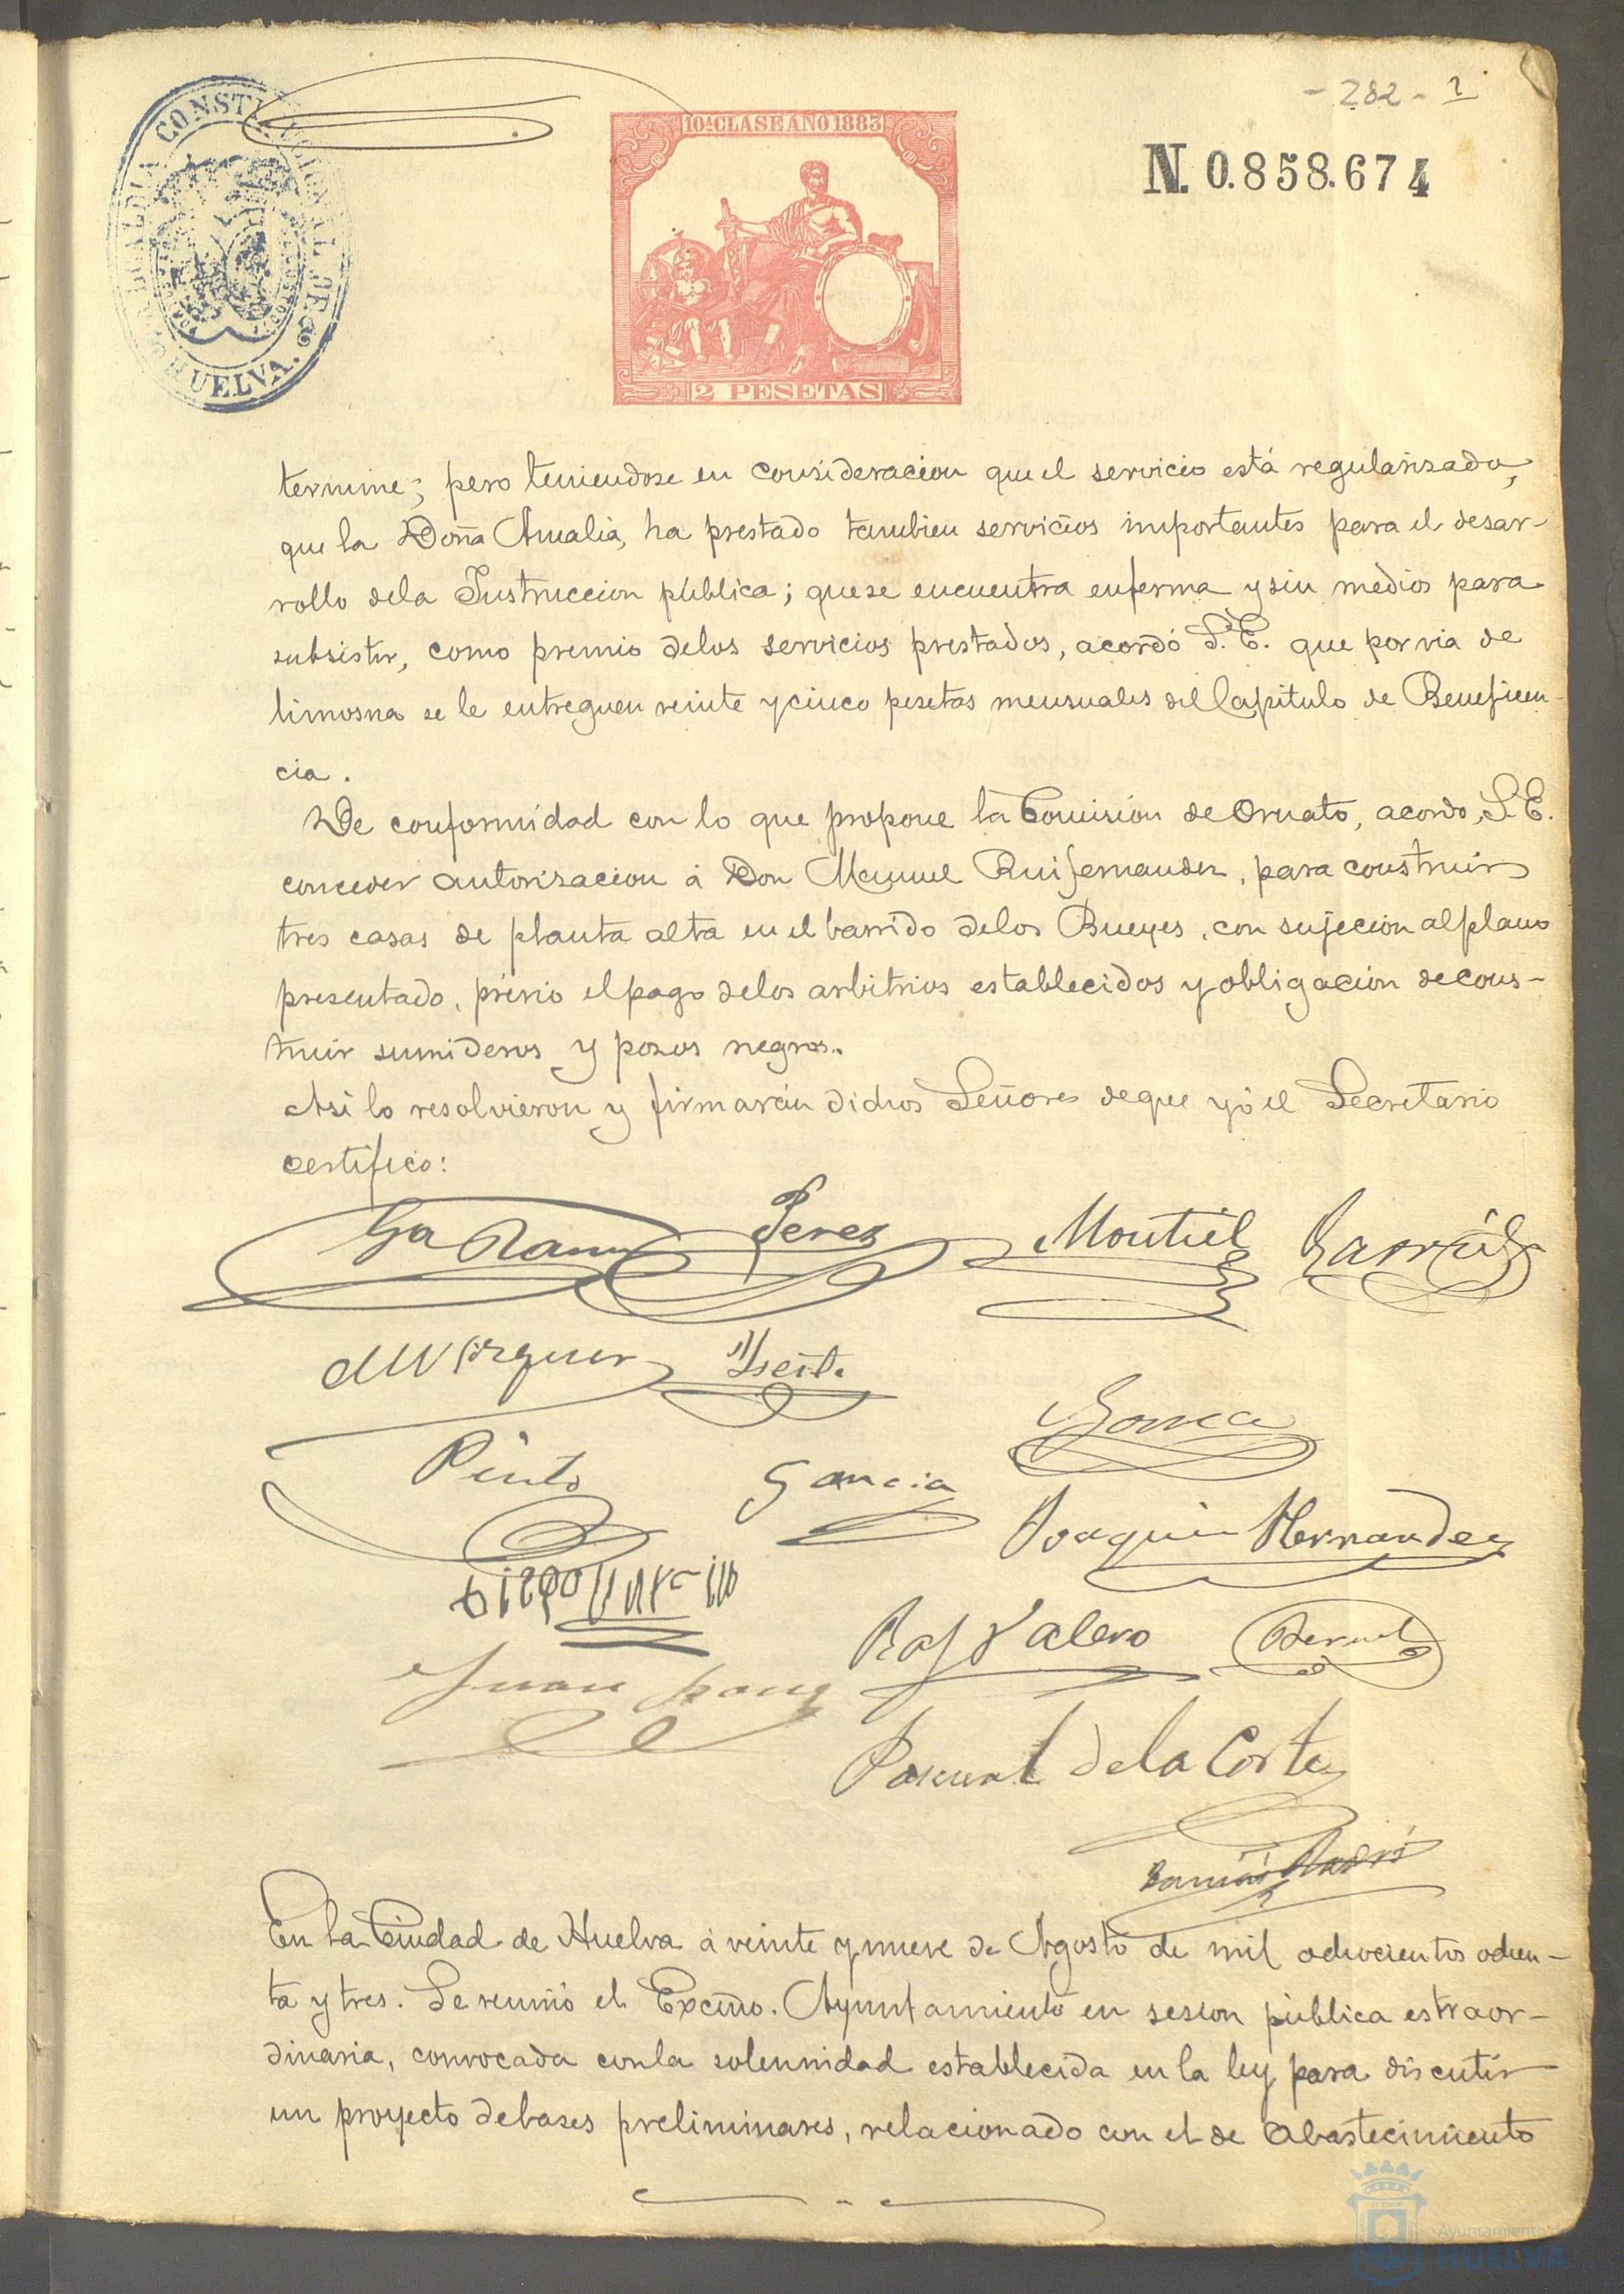 - 282 -
ALCALDIA CONSTITUCIONAL DE HUELVA.
10ª CLASE AÑO 1883
N. 0.858.674
2 PESETAS
termine; pero teniendose en consideracion que el servicio está regularizado,
que la Doña Amalia, ha prestado tambien servicios importantes para el desar-
rollo dela Instruccion pública; que se encuentra enferma y sin medios para
subsistir, como premio delos servicios prestados, acordó S.E. que por via de
limosna se le entreguen veinte y cinco pesetas mensuales del Capitulo de Beneficen-
cia.
De conformidad con lo que propone la Comision de Ornato, acordo, S.E.
conceder autorizacion á Don Manuel Ruifernandez, para construir
tres casas de planta alta en el barrido delos Bueyes, con sujecion al plano
presentado, prévio el pago delos arbitrios establecidos y obligacion de cons-
truir sumideros y pozos negros.
Asi lo resolvieron y firmarán dichos Señores de que yo el Secretario
certifico:
Perez Montiel Garrido
Pinto Garcia
Joaquin Hernandez
Raf Valero Bernal
Juan
Pascual de la Corte
En la Ciudad de Huelva á veinte y nueve de Agosto de mil ochocientos ochen-
ta y tres. Se reunió el Excmo. Ayuntamiento en sesion pública estraor-
dinaria, convocada con la solemnidad establecida en la ley para discutir
un proyecto de bases preliminares, relacionado con el de Abastecimiento
Ayuntamiento
HUELVA